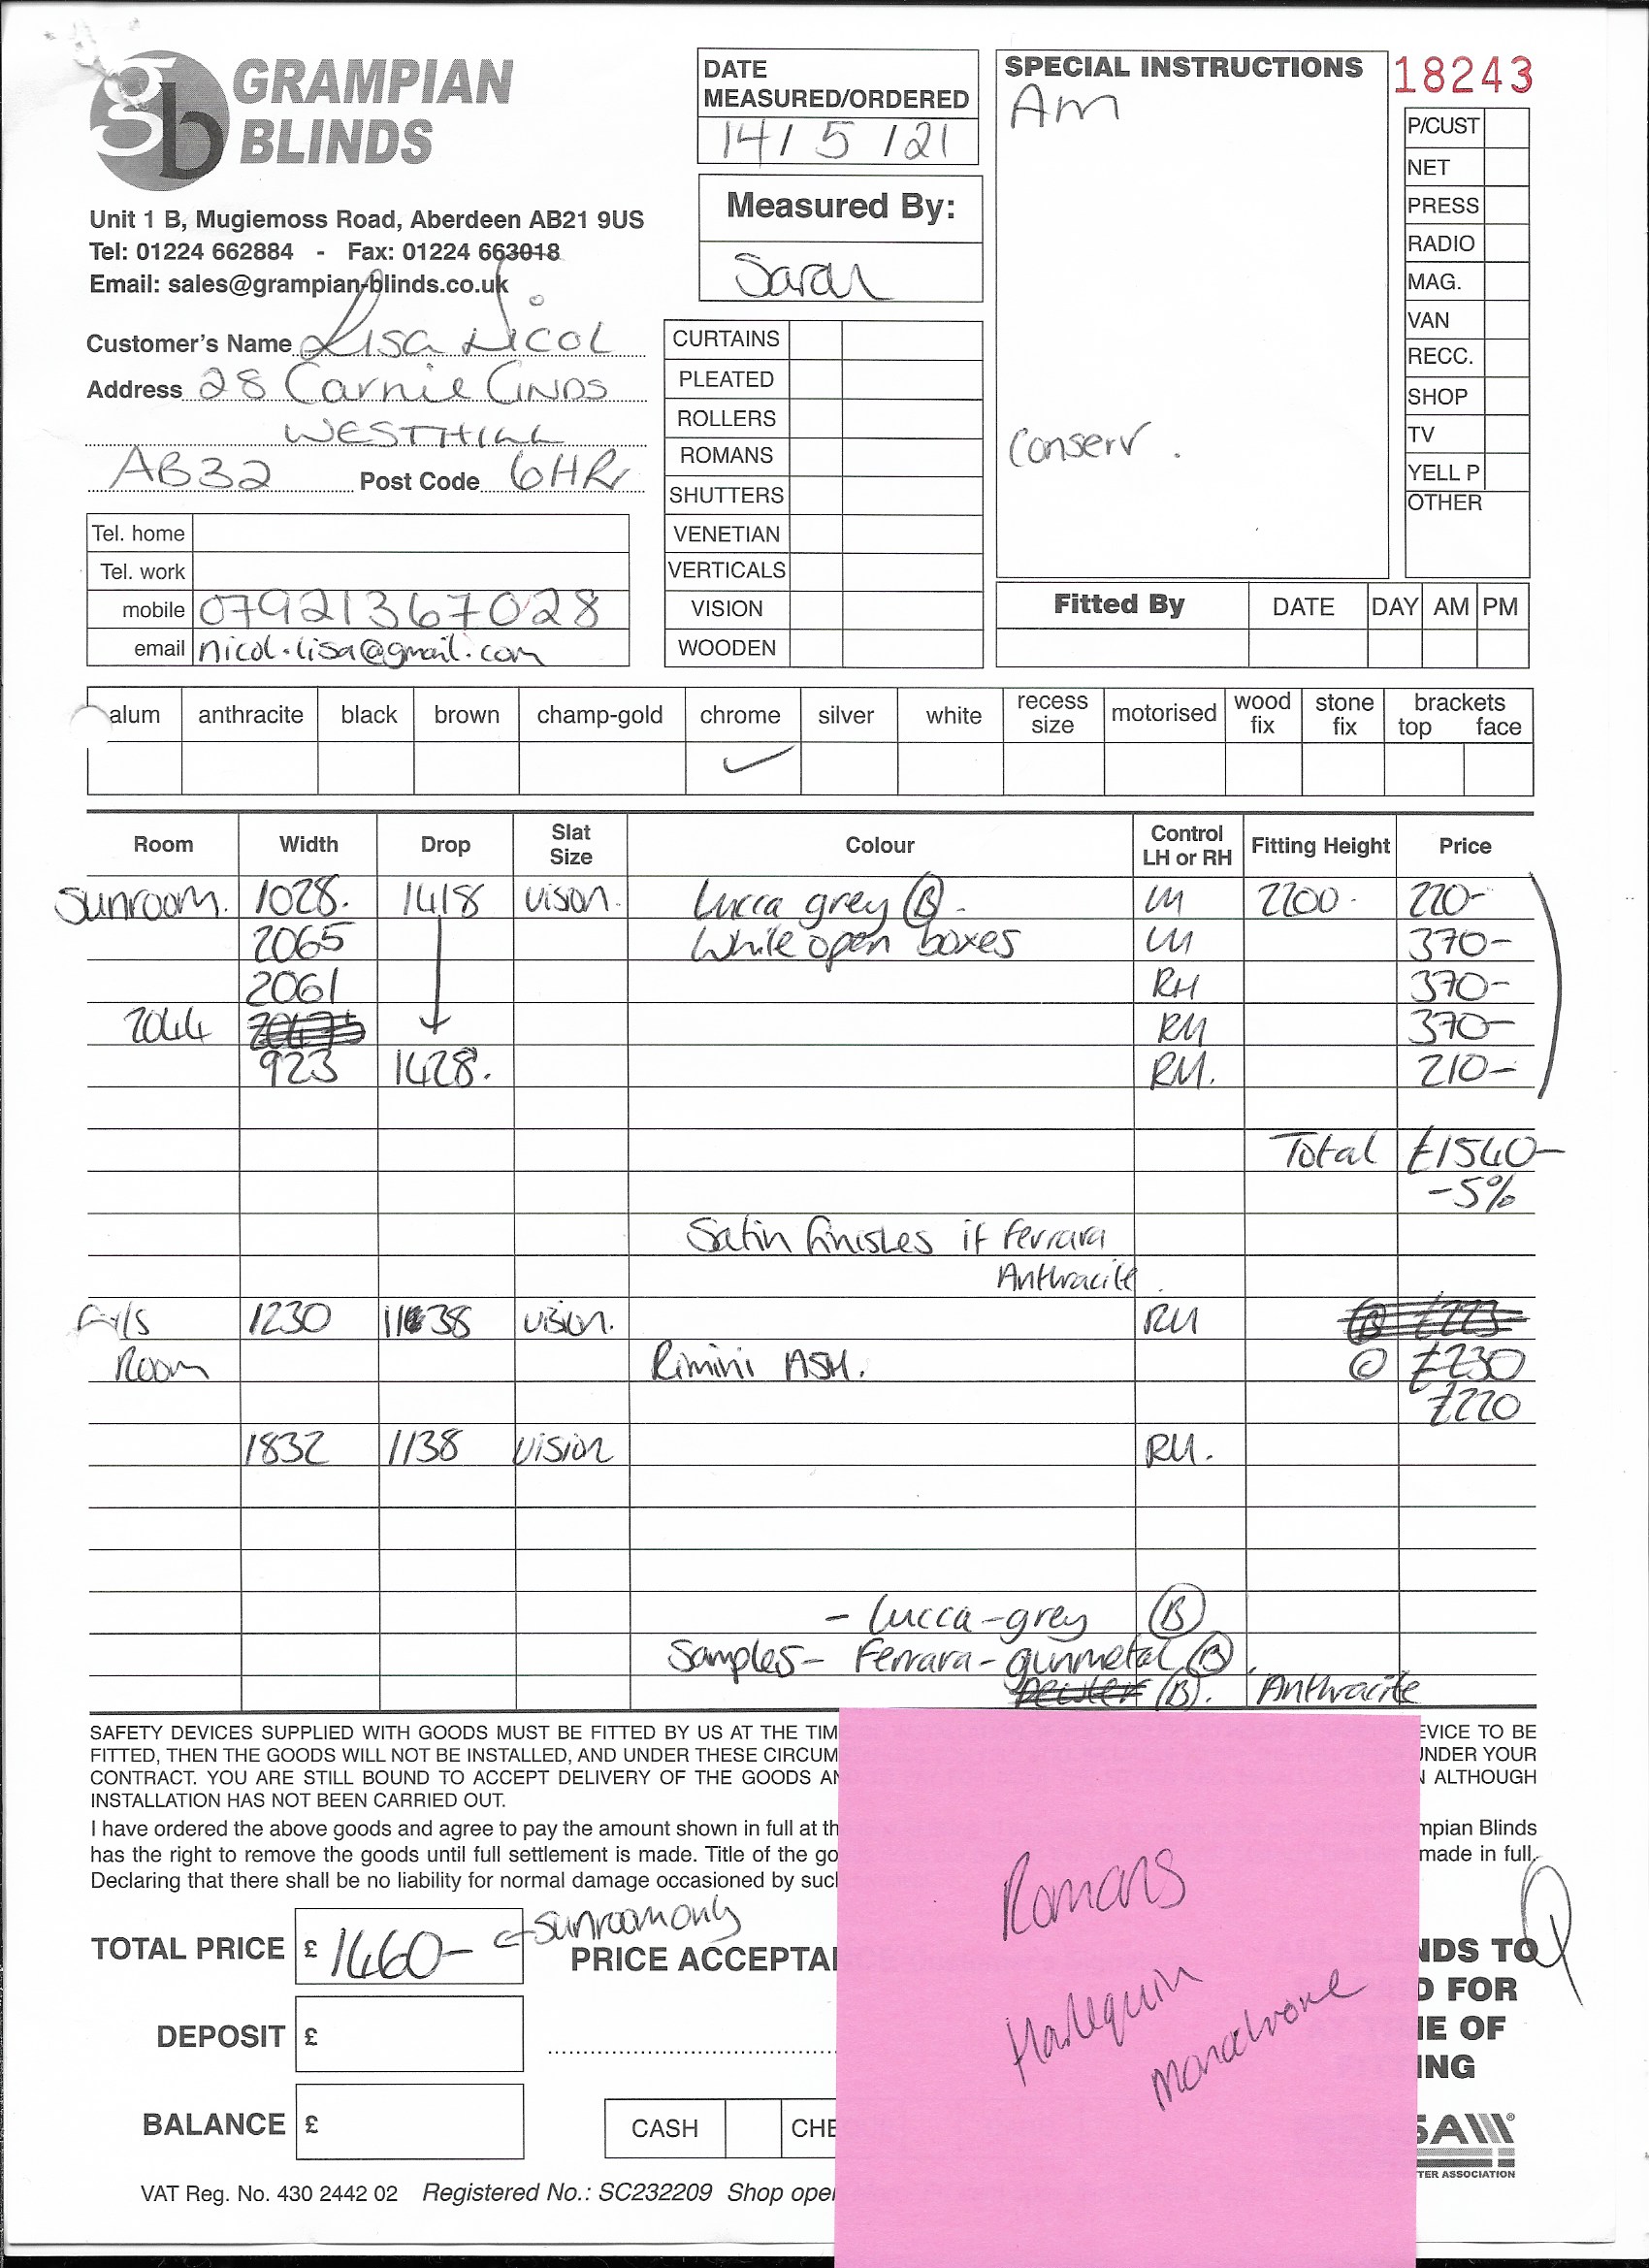 GRAMPIAN
BLINDS
gb
Unit 1 B, Mugiemoss Road, Aberdeen AB21 9US
Tel: 01224 662884 - Fax: 01224 663018
Email: sales@grampian-blinds.co.uk
Customer's Name Lisa Nicol
Address 28 Carnie GNDS
WESTHILL
AB32 Post Code 6HR
Tel. home
Tel. work
mobile 07921367028
email nicol.lisa@gmail.com
DATE
MEASURED/ORDERED
14/5/21
Measured By:
Sarah
CURTAINS
PLEATED
ROLLERS
ROMANS
SHUTTERS
VENETIAN
VERTICALS
VISION
WOODEN
SPECIAL INSTRUCTIONS
Am
Conserv.
18243
P/CUST
NET
PRESS
RADIO
MAG.
VAN
RECC.
SHOP
TV
YELL P
OTHER
Fitted By DATE DAY AM PM
alum anthracite black brown champ-gold chrome silver white recess size motorised wood fix stone fix brackets top face
✓
Room Width Drop Slat Size Colour Control LH or RH Fitting Height Price
Sunroom. 1028. 1418 vison. Lucca grey (B). LH 2200. 220-
2065 White open boxes LH 370-
2061 RH 370-
2044 RH 370-
923 1428. RH. 210-
Total £1540-
-5%
Satin finishes if Ferrara
Anthracite.
1230 1138 vision. RH
Room Rimini ASH. (C) £230
£220
1832 1138 vision RH.
- Lucca-grey (B)
Samples- Ferrara-gunmetal (B).
(B). Anthracite
SAFETY DEVICES SUPPLIED WITH GOODS MUST BE FITTED BY US AT THE TIM EVICE TO BE
FITTED, THEN THE GOODS WILL NOT BE INSTALLED, AND UNDER THESE CIRCUM UNDER YOUR
CONTRACT. YOU ARE STILL BOUND TO ACCEPT DELIVERY OF THE GOODS AN ALTHOUGH
INSTALLATION HAS NOT BEEN CARRIED OUT.
I have ordered the above goods and agree to pay the amount shown in full at th mpian Blinds
has the right to remove the goods until full settlement is made. Title of the go made in full.
Declaring that there shall be no liability for normal damage occasioned by such
TOTAL PRICE £ 1460- ← Sunroom only
PRICE ACCEPTA
DEPOSIT £
BALANCE £
CASH CHE
NDS TO
D FOR
IE OF
ING
Romans
Harlequin
TER ASSOCIATION
VAT Reg. No. 430 2442 02 Registered No.: SC232209 Shop ope